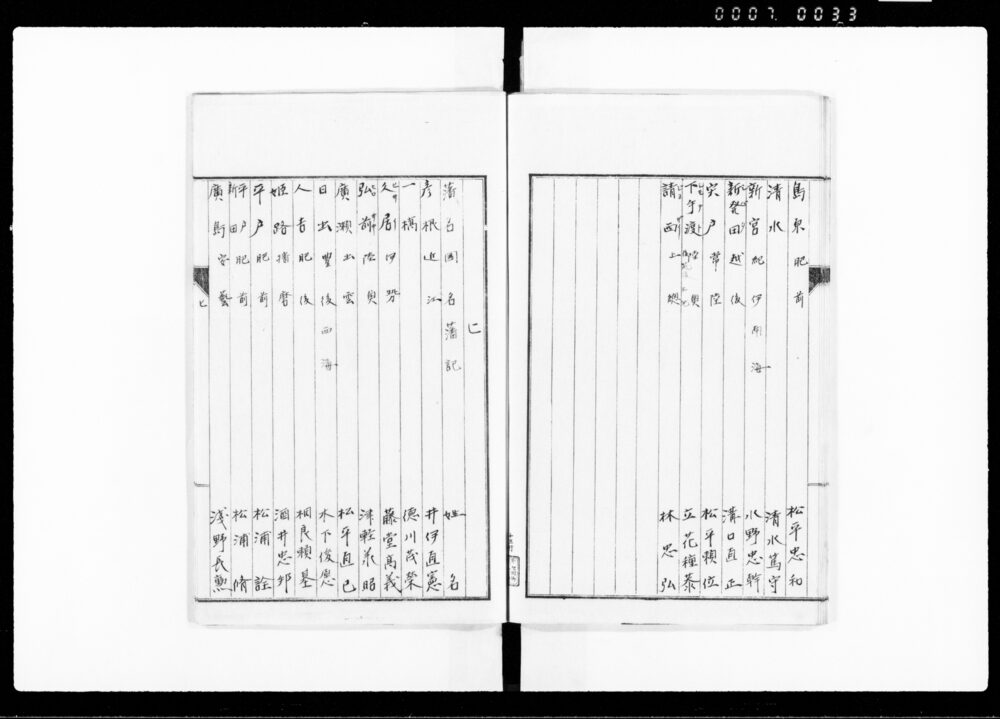 0007 0033
島原肥前 松平忠和
清水 清水篤守
新宮紀伊南海 水野忠幹
新發田越後 溝口直正
宍戸常陸 松平頼位
下手渡陸奥 立花種恭
請西上總 林忠弘
ヒ
藩名国名藩記 姓名
彦根近江 井伊直憲
一橋 徳川茂榮
久居伊勢 藤堂高義
弘前陸奥 津軽承昭
廣瀬出雲 松平直己
日出豊後西海 木下俊愿
人吉肥後 相良頼基
姫路播磨 酒井忠邦
平戸肥前 松浦詮
平戸新田肥前 松浦脩
廣島安藝 浅野長勲
七